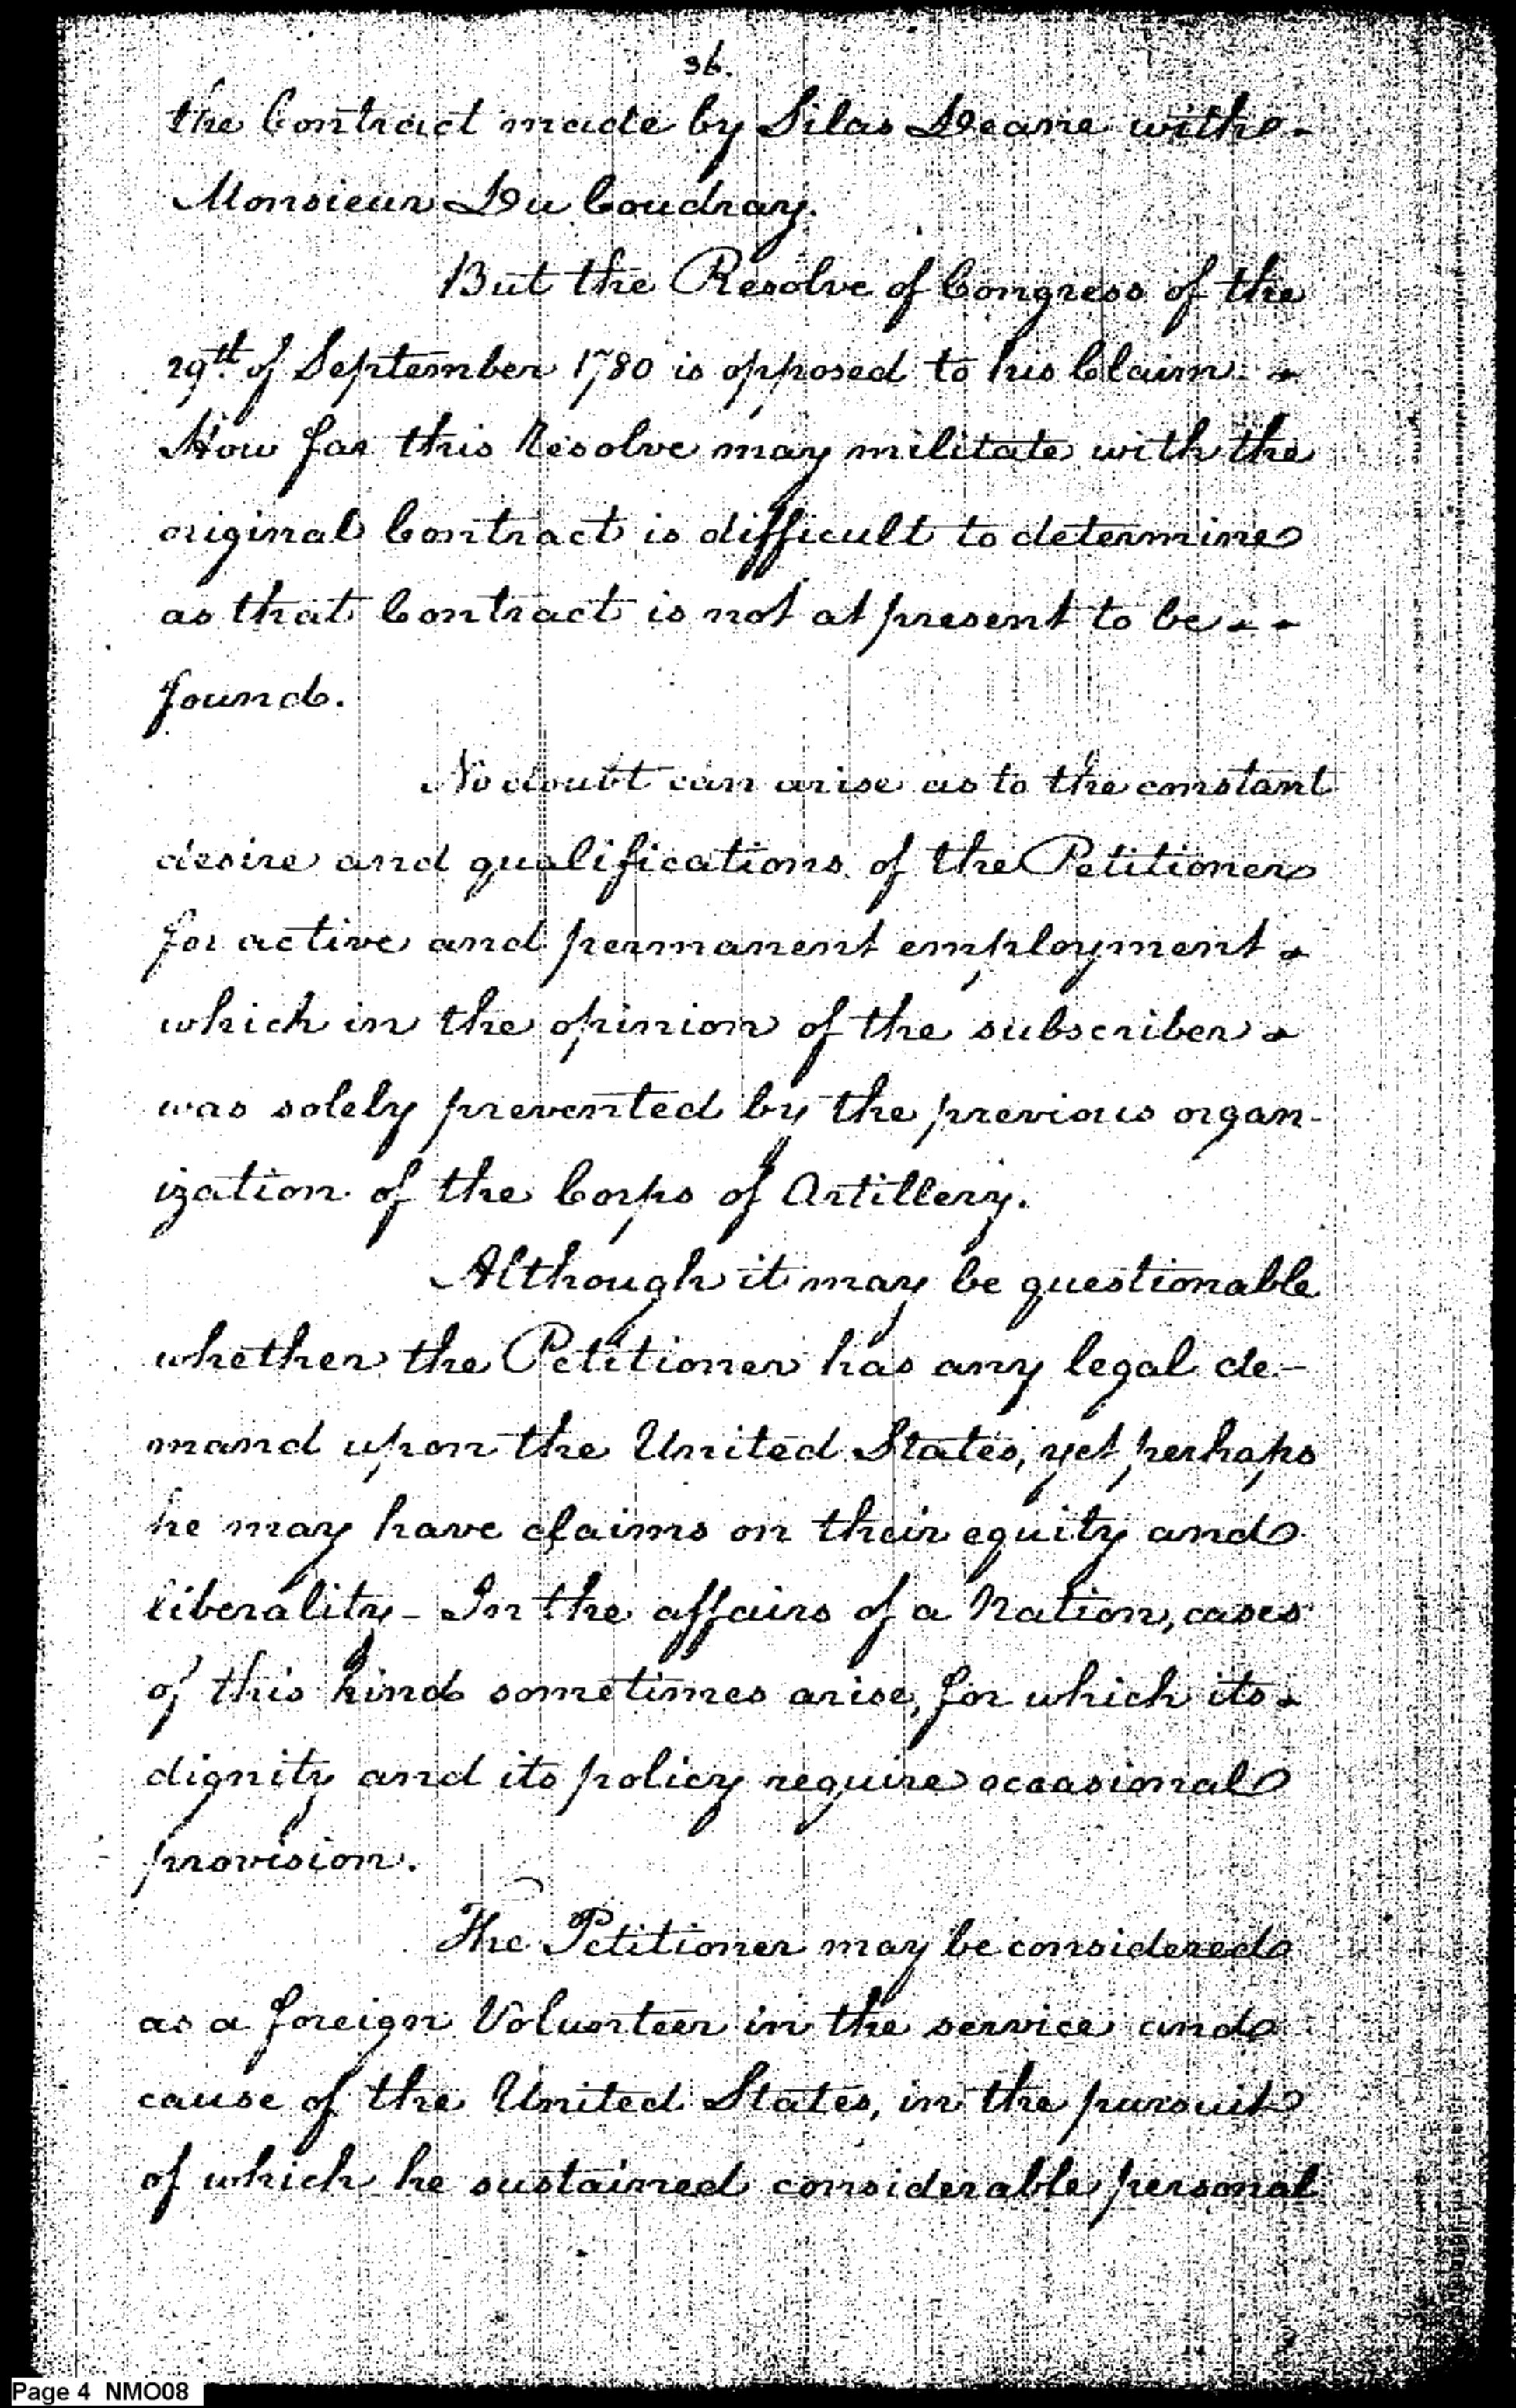 36.
the Contract made by Silas Deane with -
Monsieur Du Coudray.
But the Resolve of Congress of the
29th. of September 1780 is opposed to his Claim -
How far this Resolve may militate with the
original Contract is difficult to determine
as that Contract is not at present to be - -
found.
No doubt can arise as to the constant
desire and qualifications of the Petitioner
for active and permanent employment -
which in the opinion of the subscriber -
was solely prevented by the previous organ-
ization of the Corps of Artillery.
Although it may be questionable
whether the Petitioner has any legal de-
mand upon the United States, yet perhaps
he may have claims on their equity and
liberality - In the affairs of a Nation, cases
of this kind sometimes arise, for which its -
dignity and its policy require occasional
provision.
The Petitioner may be considered
as a foreign Volunteer in the service and
cause of the United States, in the pursuit
of which he sustained considerable personal
Page 4 NMO08